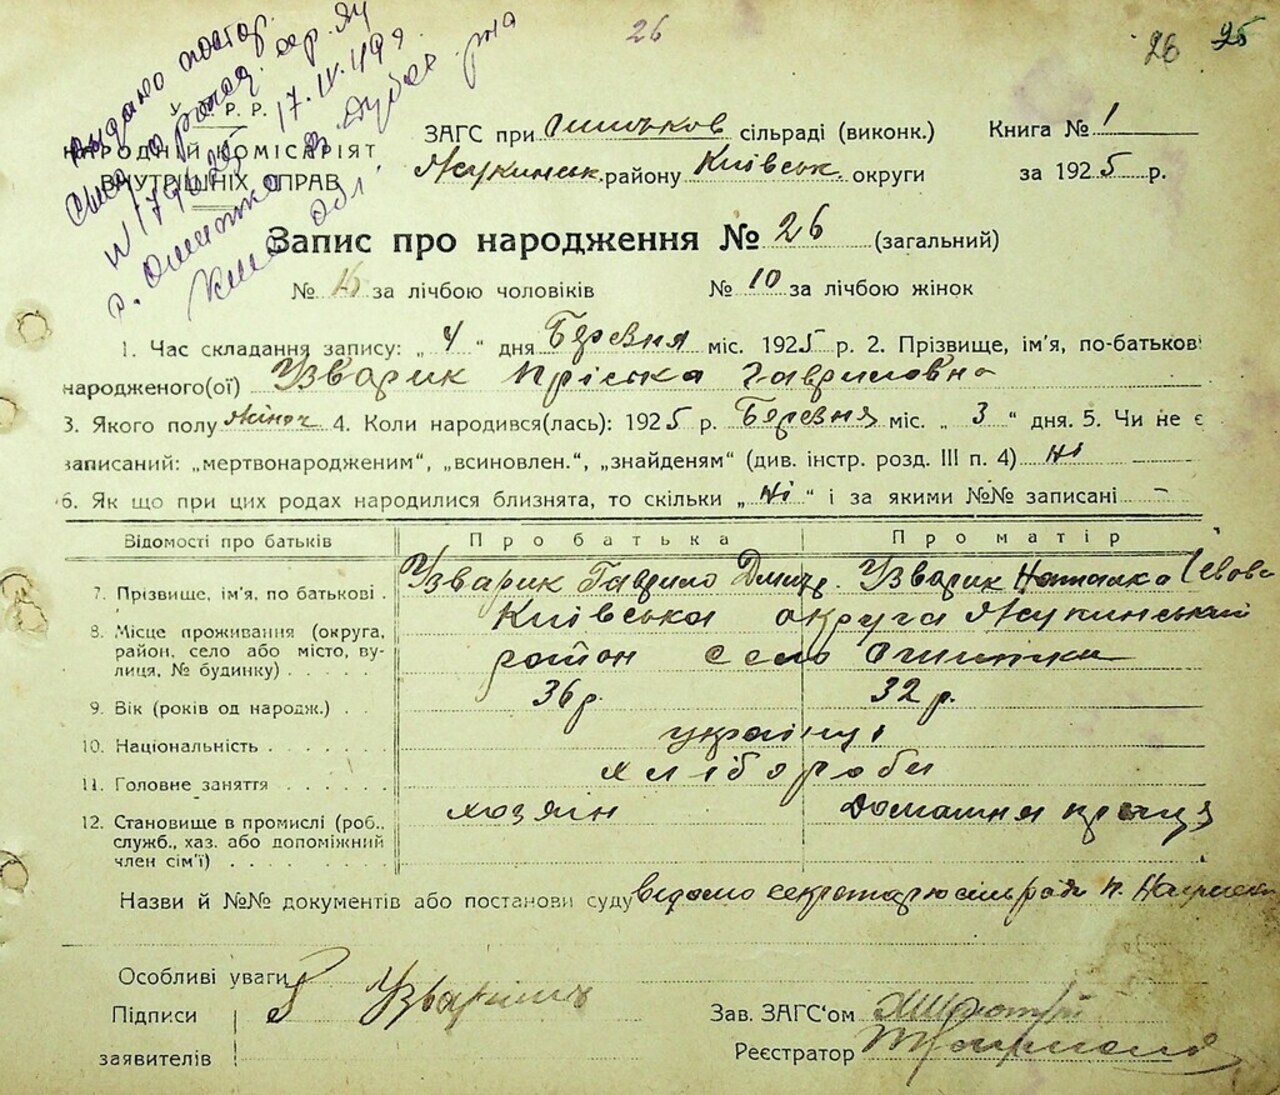 26
26 25
Видано повтор.
У. С. Р. Р.
НАРОДНІЙ КОМІСАРІЯТ
ВНУТРІШНІХ СПРАВ
17.IV.49
ЗАГС при сільраді (виконк.)
Книга № 1
району Київськ. округи
за 1925 р.
Запис про народження № 26 (загальний)
№ за лічбою чоловіків № 10 за лічбою жінок
1. Час складання запису: „ 4 “ дня Березня міс. 1925 р. 2. Прізвище, ім'я, по-батькові
народженого(ої) Узварик Пріська Гавриловна
3. Якого полу жіноч 4. Коли народився(лась): 1925 р. Березня міс. „ 3 “ дня. 5. Чи не є
записаний: „мертвонародженим“, „всиновлен.“, „знайденям“ (див. інстр. розд. III п. 4) Ні
6. Як що при цих родах народилися близнята, то скільки „ Ні “ і за якими №№ записані –
Відомості про батьків Про батька Про матір
7. Прізвище, ім'я, по батькові . Узварик Гаврило Дмитр. Узварик Наталка
8. Місце проживання (округа, район, село або місто, вулиця, № будинку) . . . . . Київська округа Жукинський
район село
9. Вік (років од народж.) . . 36 р. 32 р.
10. Національність . . . . . . . українці
11. Головне заняття . . . . . . хлібороби
12. Становище в промислі (роб., служб., хаз. або допоміжний член сім'ї) . . . . . . . . хозяїн домашня праця
Назви й №№ документів або постанови суду відомо секретарю сільради
Особливі уваги
Підписи Узварик
заявителів
Зав. ЗАГС'ом
Реєстратор